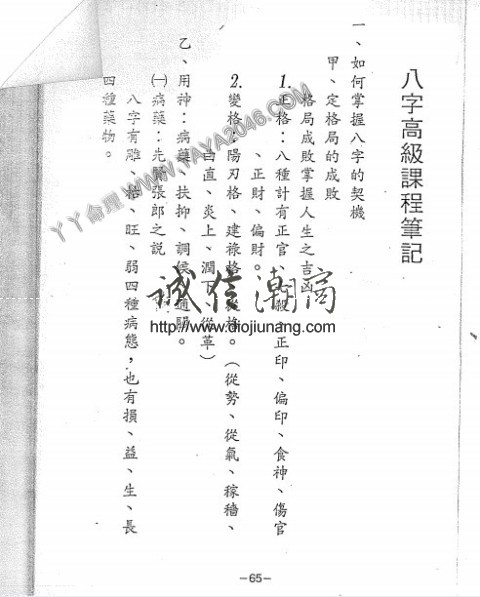 八字高級課程筆記
一、如何掌握八字的契機
甲、定格局的成敗
格局成敗掌握人生之吉凶
1.正格:八種計有正官、正印、偏印、食神、傷官
、正財、偏財。
2.變格:陽刃格、建祿格、從格。(從勢、從氣、稼穡、
曲直、炎上、潤下、從革)
乙、用神:病藥、扶抑、調侯、通關。
㈠病藥:先師張郎之說
八字有雕、枯、旺、弱四種病態,也有損、益、生、長
四種藥物。
-65-
丫丫命理 WWW.YAYA2046.COM
诚信潮商
http://www.diojiunang.com